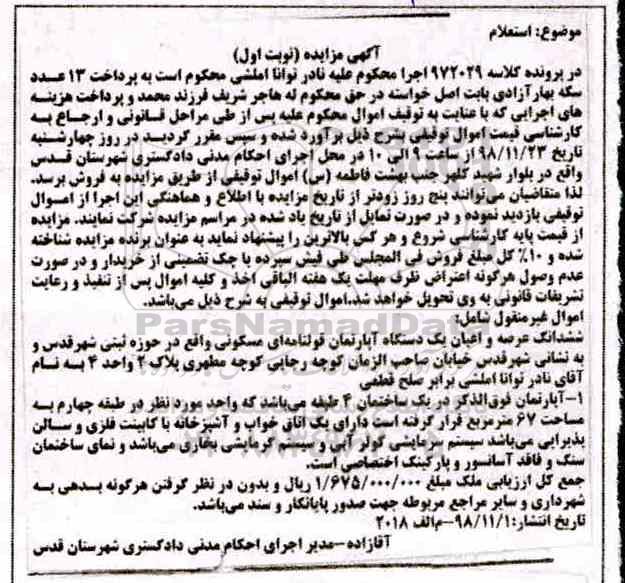 موضوع: استعلام
آگهی مزایده (نوبت اول)
در پرونده کلاسه ۹۷۲۰۲۹ اجرا محکوم علیه نادر توانا املشی محکوم است به پرداخت ۱۳ عدد
سکه بهار آزادی بابت اصل خواسته در حق محکوم له هاجر شریف فرزند محمد و پرداخت هزینه
های اجرایی که با عنایت به توقیف اموال محکوم علیه پس از طی مراحل قانونی و ارجاع به
کارشناسی قیمت اموال توقیفی بشرح ذیل برآورد شده و سپس مقرر گردید در روز چهارشنبه
تاریخ ۹۸/۱۱/۲۳ از ساعت ۹ الی ۱۰ در محل اجرای احکام مدنی دادگستری شهرستان قدس
واقع در بلوار شهید کلهر جنب بهشت فاطمه (س) اموال توقیفی از طریق مزایده به فروش برسد.
لذا متقاضیان می‌توانند پنج روز زودتر از تاریخ مزایده با اطلاع و هماهنگی این اجرا از اموال
توقیفی بازدید نموده و در صورت تمایل از تاریخ یاد شده در مراسم مزایده شرکت نمایند. مزایده
از قیمت پایه کارشناسی شروع و هر کس بالاترین را پیشنهاد نماید به عنوان برنده مزایده شناخته
شده و ۱۰٪ کل مبلغ فروش فی المجلس طی فیش سپرده یا چک تضمینی از خریدار و در صورت
عدم وصول هرگونه اعتراض ظرف مهلت یک هفته الباقی اخذ و کلیه اموال پس از تنفیذ و رعایت
تشریفات قانونی به وی تحویل خواهد شد.اموال توقیفی به شرح ذیل می‌باشد.
اموال غیرمنقول شامل:
ParsNamadData
ششدانگ عرصه و اعیان یک دستگاه آپارتمان قولنامه‌ای مسکونی واقع در حوزه ثبتی شهرقدس و
به نشانی شهرقدس خیابان صاحب الزمان کوچه رجایی کوچه مطهری پلاک ۲ واحد ۴ به نام
آقای نادر توانا املشی برابر صلح قطعی
۱-آپارتمان فوق‌الذکر در یک ساختمان ۴ طبقه می‌باشد که واحد مورد نظر در طبقه چهارم به
مساحت ۶۷ مترمربع قرار گرفته است دارای یک اتاق خواب و آشپزخانه با کابینت فلزی و سالن
پذیرایی می‌باشد سیستم سرمایشی کولر آبی و سیستم گرمایشی بخاری می‌باشد و نمای ساختمان
سنگ و فاقد آسانسور و پارکینگ اختصاصی است.
جمع کل ارزیابی ملک مبلغ ۱/۶۷۵/۰۰۰/۰۰۰ ریال و بدون در نظر گرفتن هرگونه بدهی به
شهرداری و سایر مراجع مربوطه جهت صدور پایانکار و سند می‌باشد.
تاریخ انتشار:۹۸/۱۱/۱-م‌الف ۲۰۱۸
آقازاده-مدیر اجرای احکام مدنی دادگستری شهرستان قدس